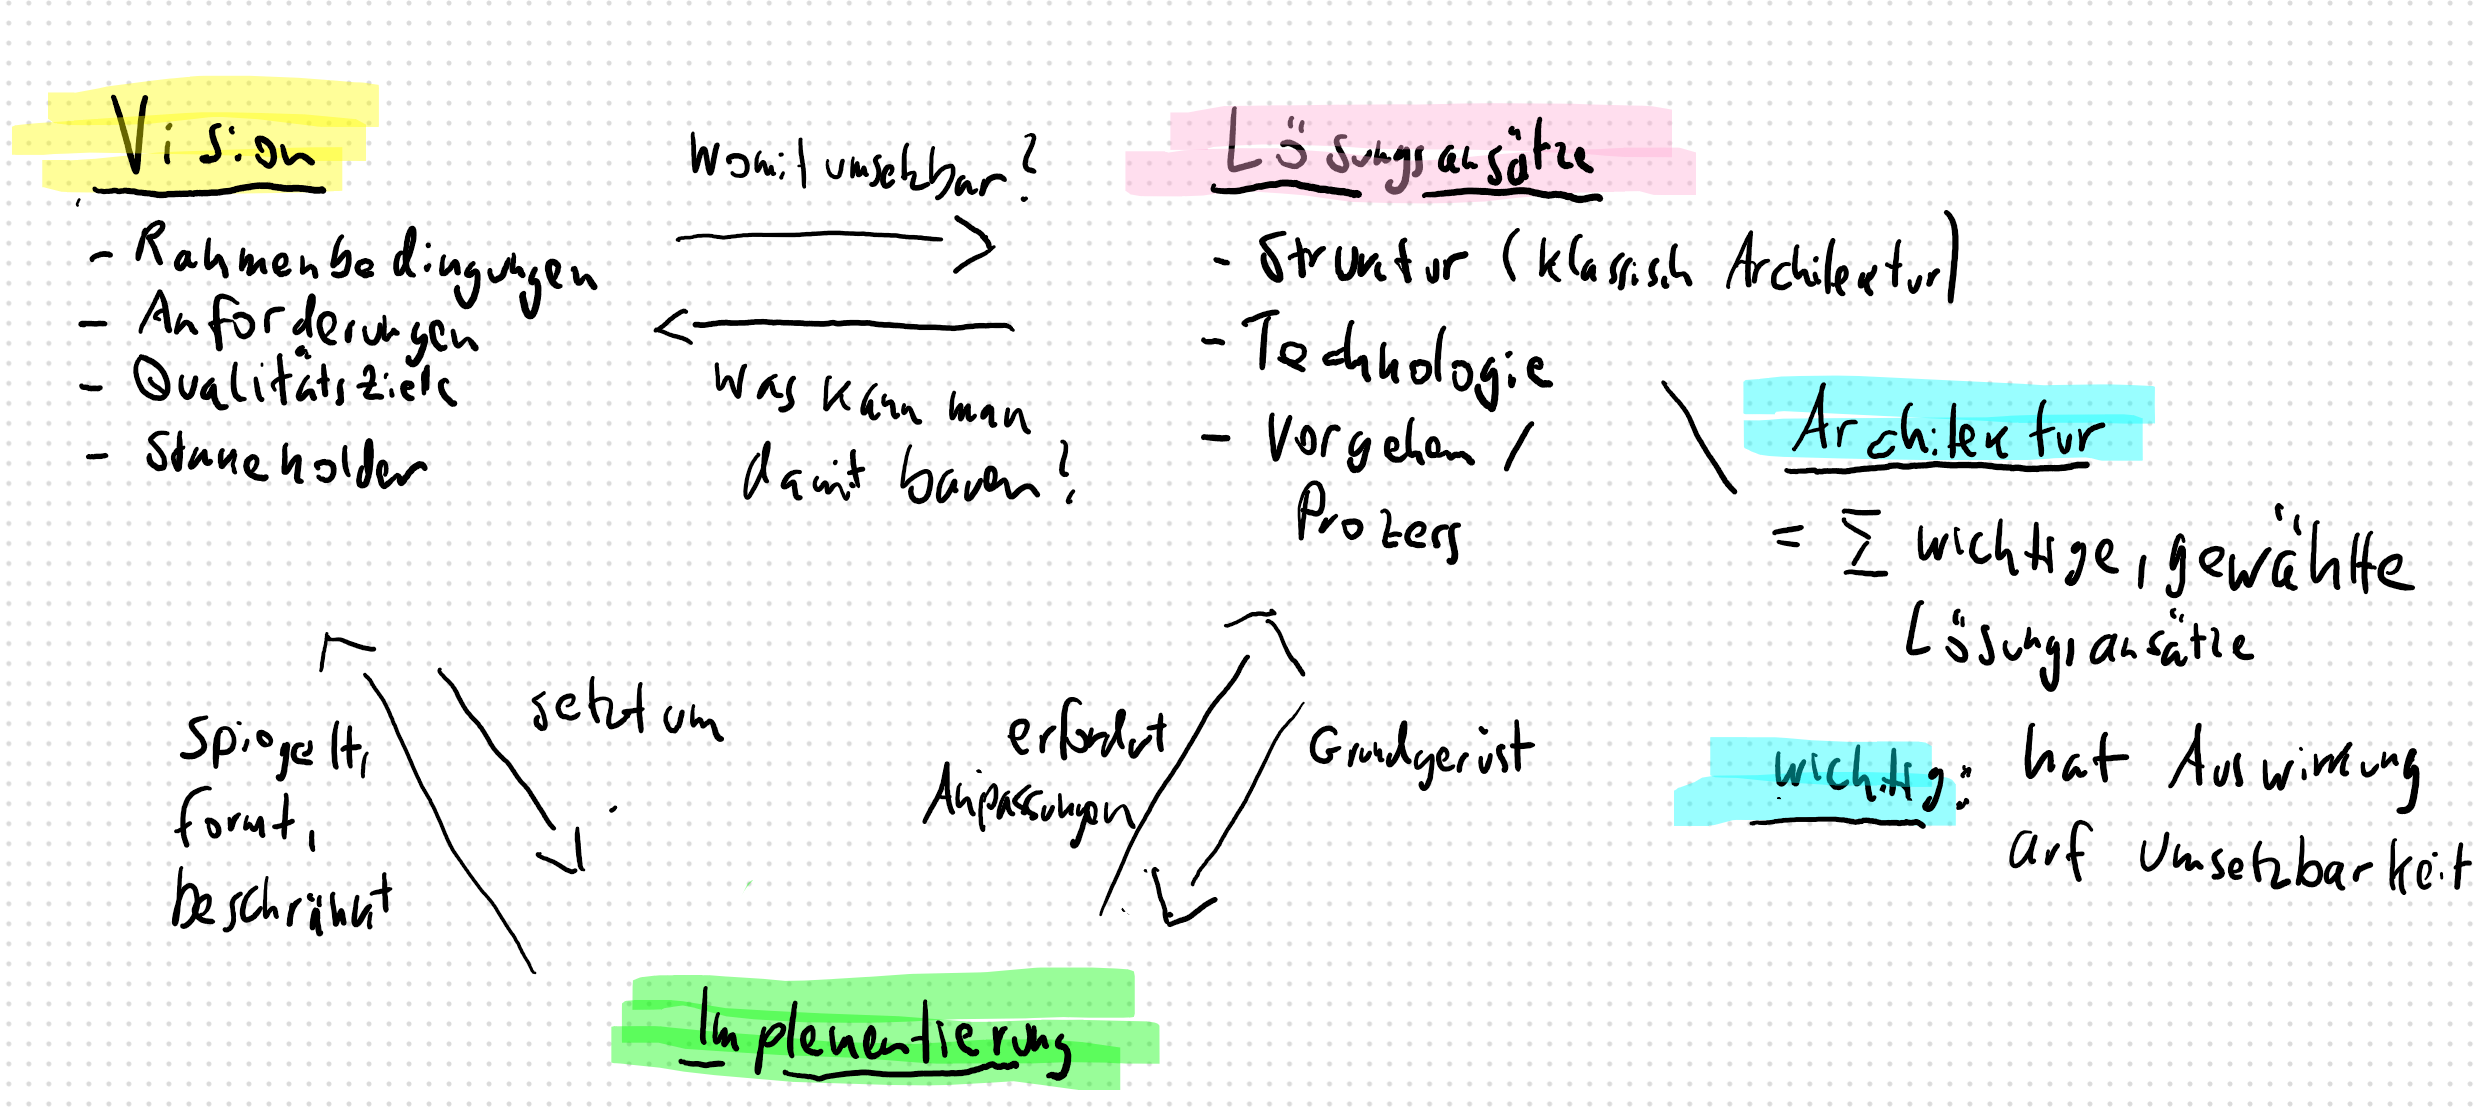 Vision
- Rahmenbedingungen
- Anforderungen
- Qualitätsziele
- Stakeholder
Womit umsetzbar?
Was kann man
damit bauen?
Lösungsansätze
- Struktur (klassisch Architektur)
- Technologie
- Vorgehen /
Prozess
Architektur
= Σ wichtige, gewählte
Lösungsansätze
wichtig: hat Auswirkung
auf Umsetzbarkeit
spiegelt,
formt,
beschränkt
setzt um
erfordert
Anpassungen
Grundgerüst
Implementierung